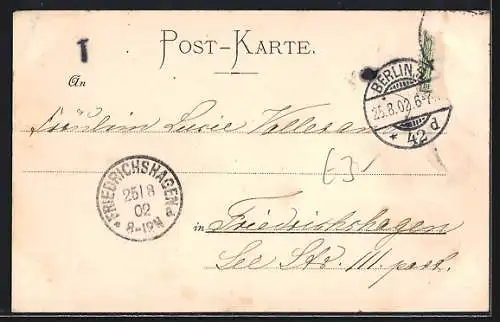 T
POST-KARTE.
An
BERLIN
25.8.02.6-7
* 42 d
Fräulein Lucie
FRIEDRICHSHAGEN
25/8
02
8-12N
* a
in Friedrichshagen
See Str. III. part.